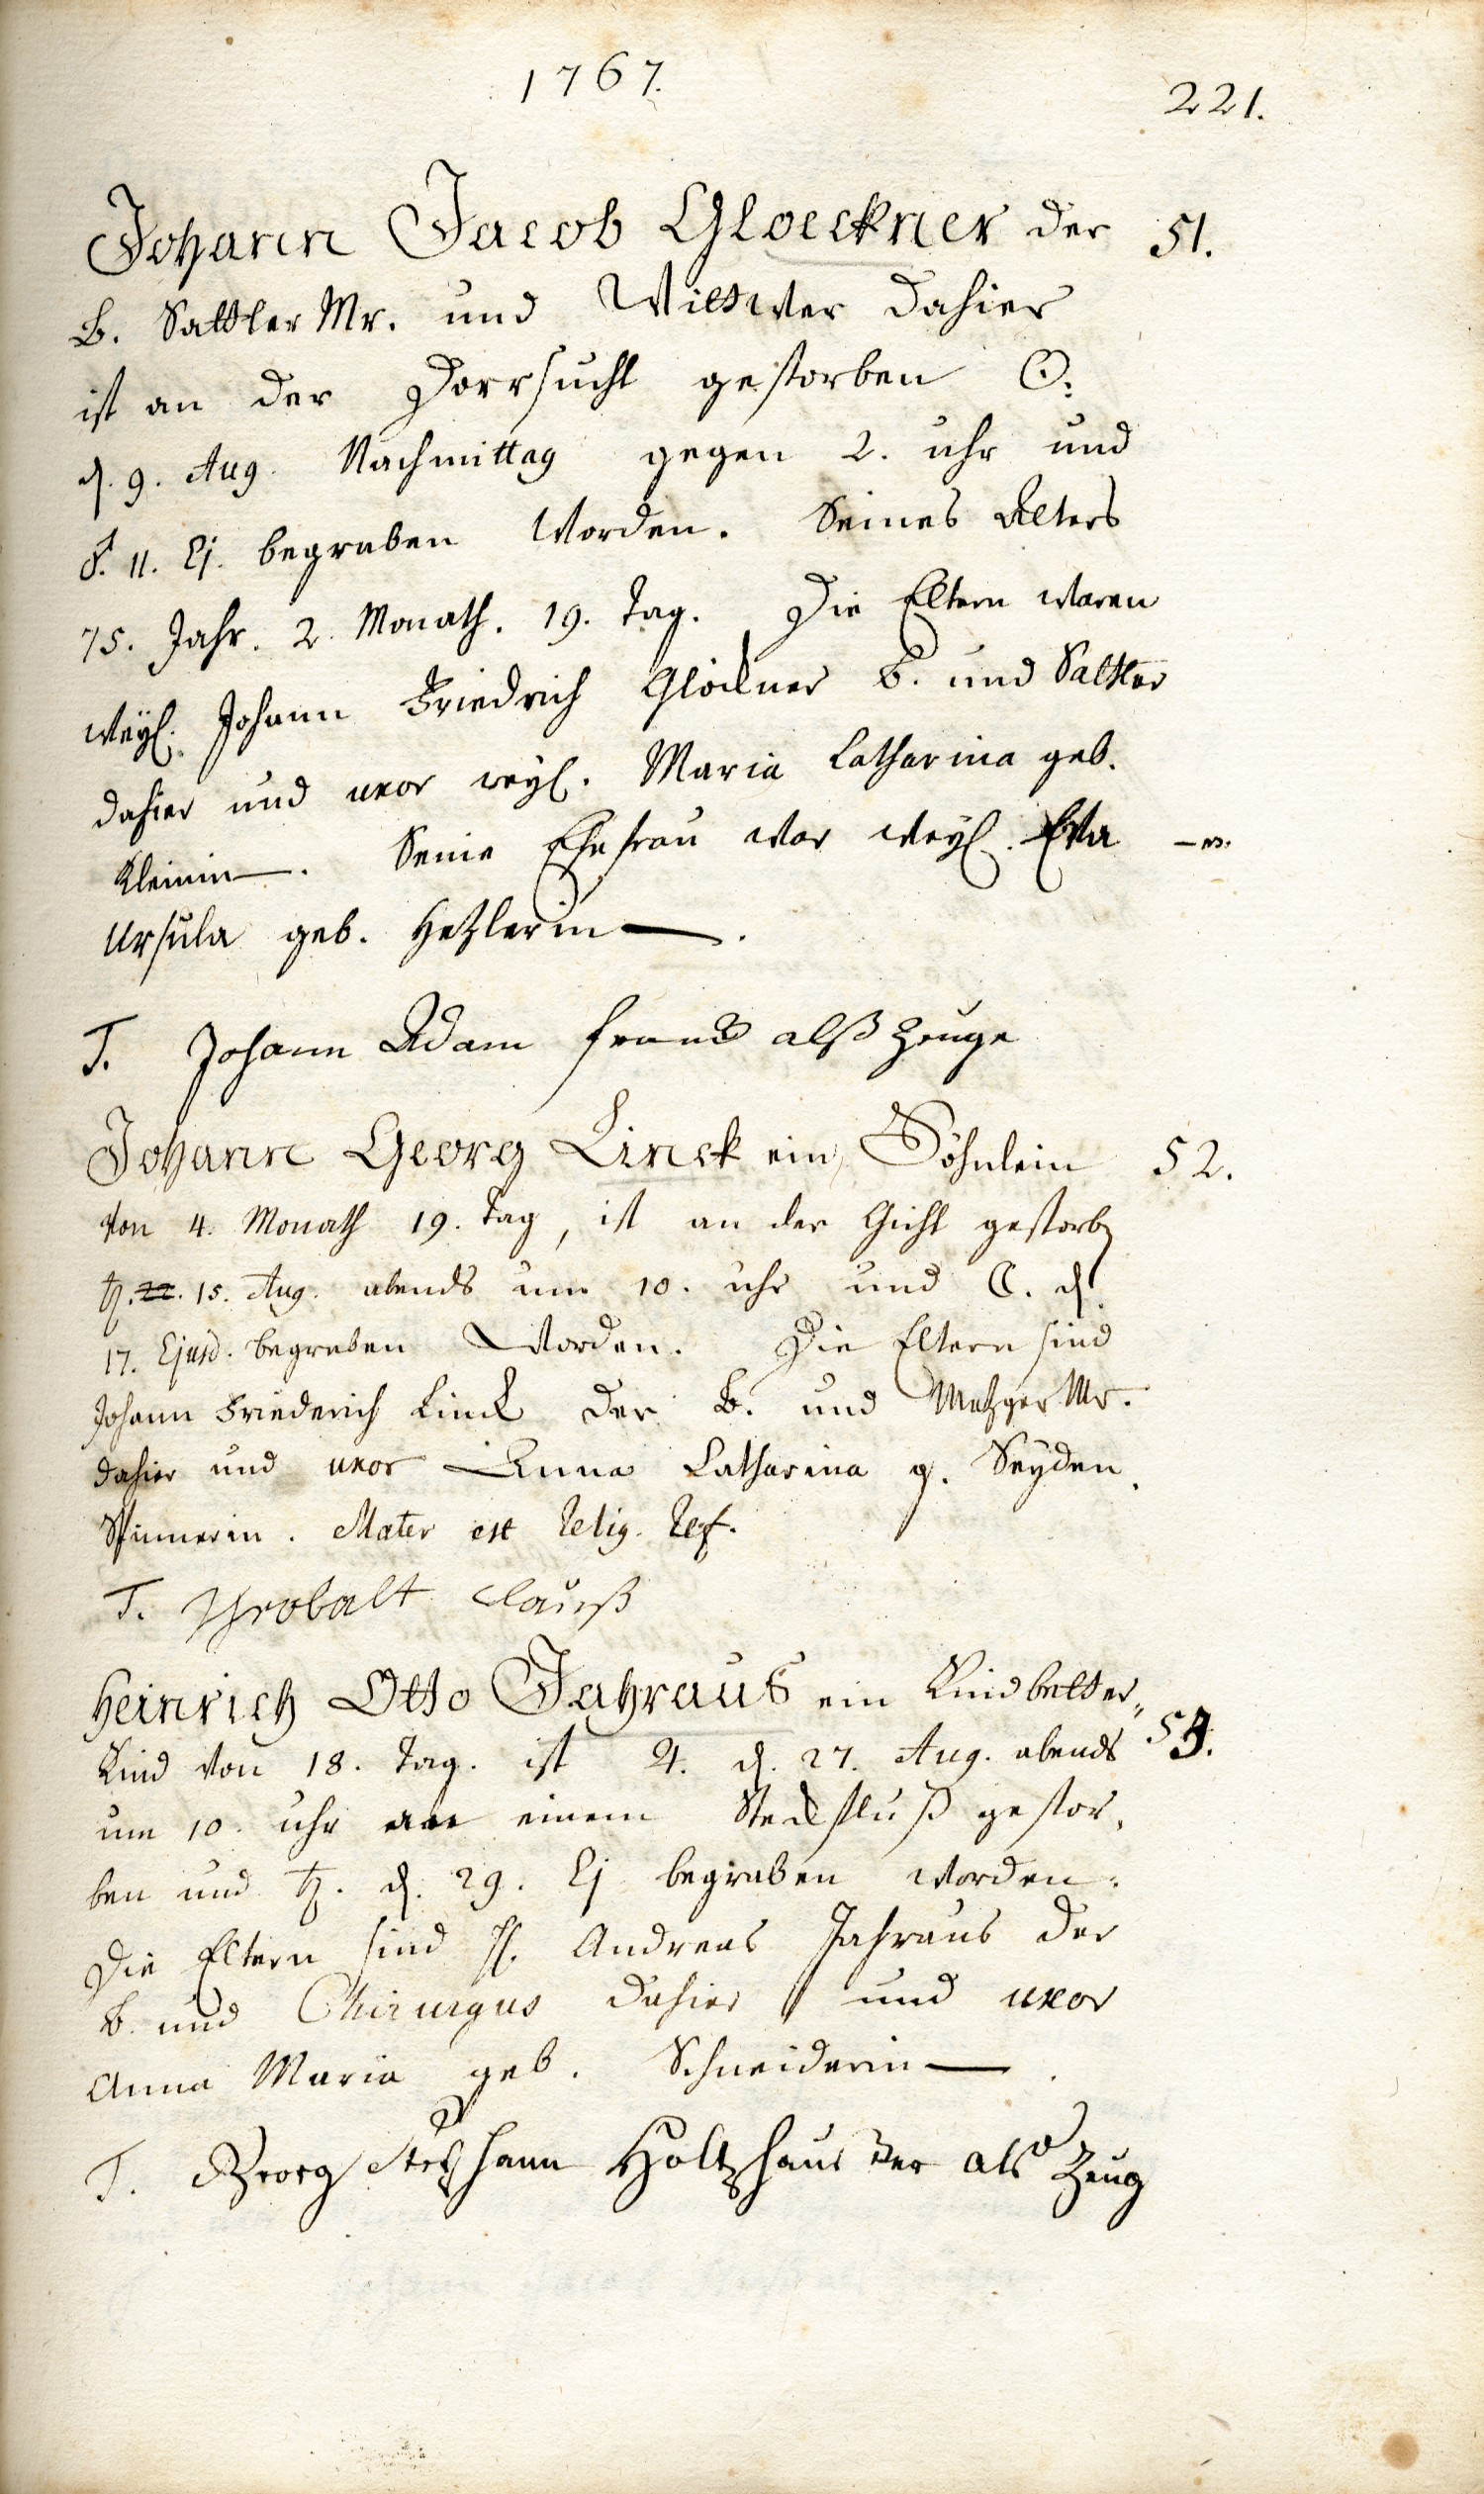 1767.
221.
Johann Jacob Gloeckner der 51.
B. Sattler Mr. und Wittwer dahier
ist an der Dorrsucht gestorben ☉.
d. 9. Aug. Nachmittag gegen 2. uhr und
♂. 11. Ej. begraben worden. Seines Alters
75. Jahr. 2. Monath. 19. Tag. Die Eltern waren
weyl. Johann Friedrich Glöckner B. und Sattler
dahier und uxor weyl. Maria Catharina geb.
Kleinin —. Seine Ehefrau war weyl. Eva
Ursula geb. Hetzlerin —.
T. Johann Adam als Zeuge
Johann Georg Linck ein Söhnlein 52.
von 4. Monath 19. Tag, ist an der Gicht gestorb
♄. 15. Aug. abends um 10. uhr und ☾. d.
17. Ejusd. begraben worden. Die Eltern sind
Johann Friederich Linck der B. und Metzger Mr.
dahier und uxor Anna Catharina g. Seyden,
Spinnerin. Mater est Relig. Ref.
T. Clauß
Heinrich Otto Jahraus ein Kindbetter„ 53.
Kind von 18. Tag. ist ♃. d. 27. Aug. abends
um 10. uhr an einem Steckfluß gestor,
ben und ♄. d. 29. Ej begraben worden.
Die Eltern sind H. Andreas Jahraus der
B. und Chirurgus dahier und uxor
Anna Maria geb. Schneiderin —.
T. Georg Holtz hauser als Zeug